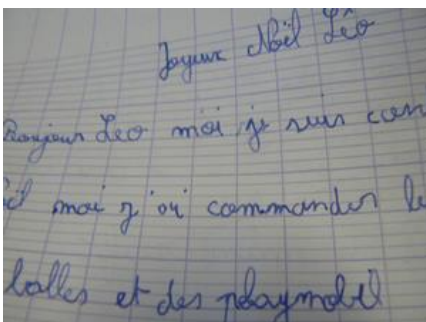 Joyeux Noël Léo
Bonjour Leo moi je suis con
il moi j'ai commander le
balles et des playmobil